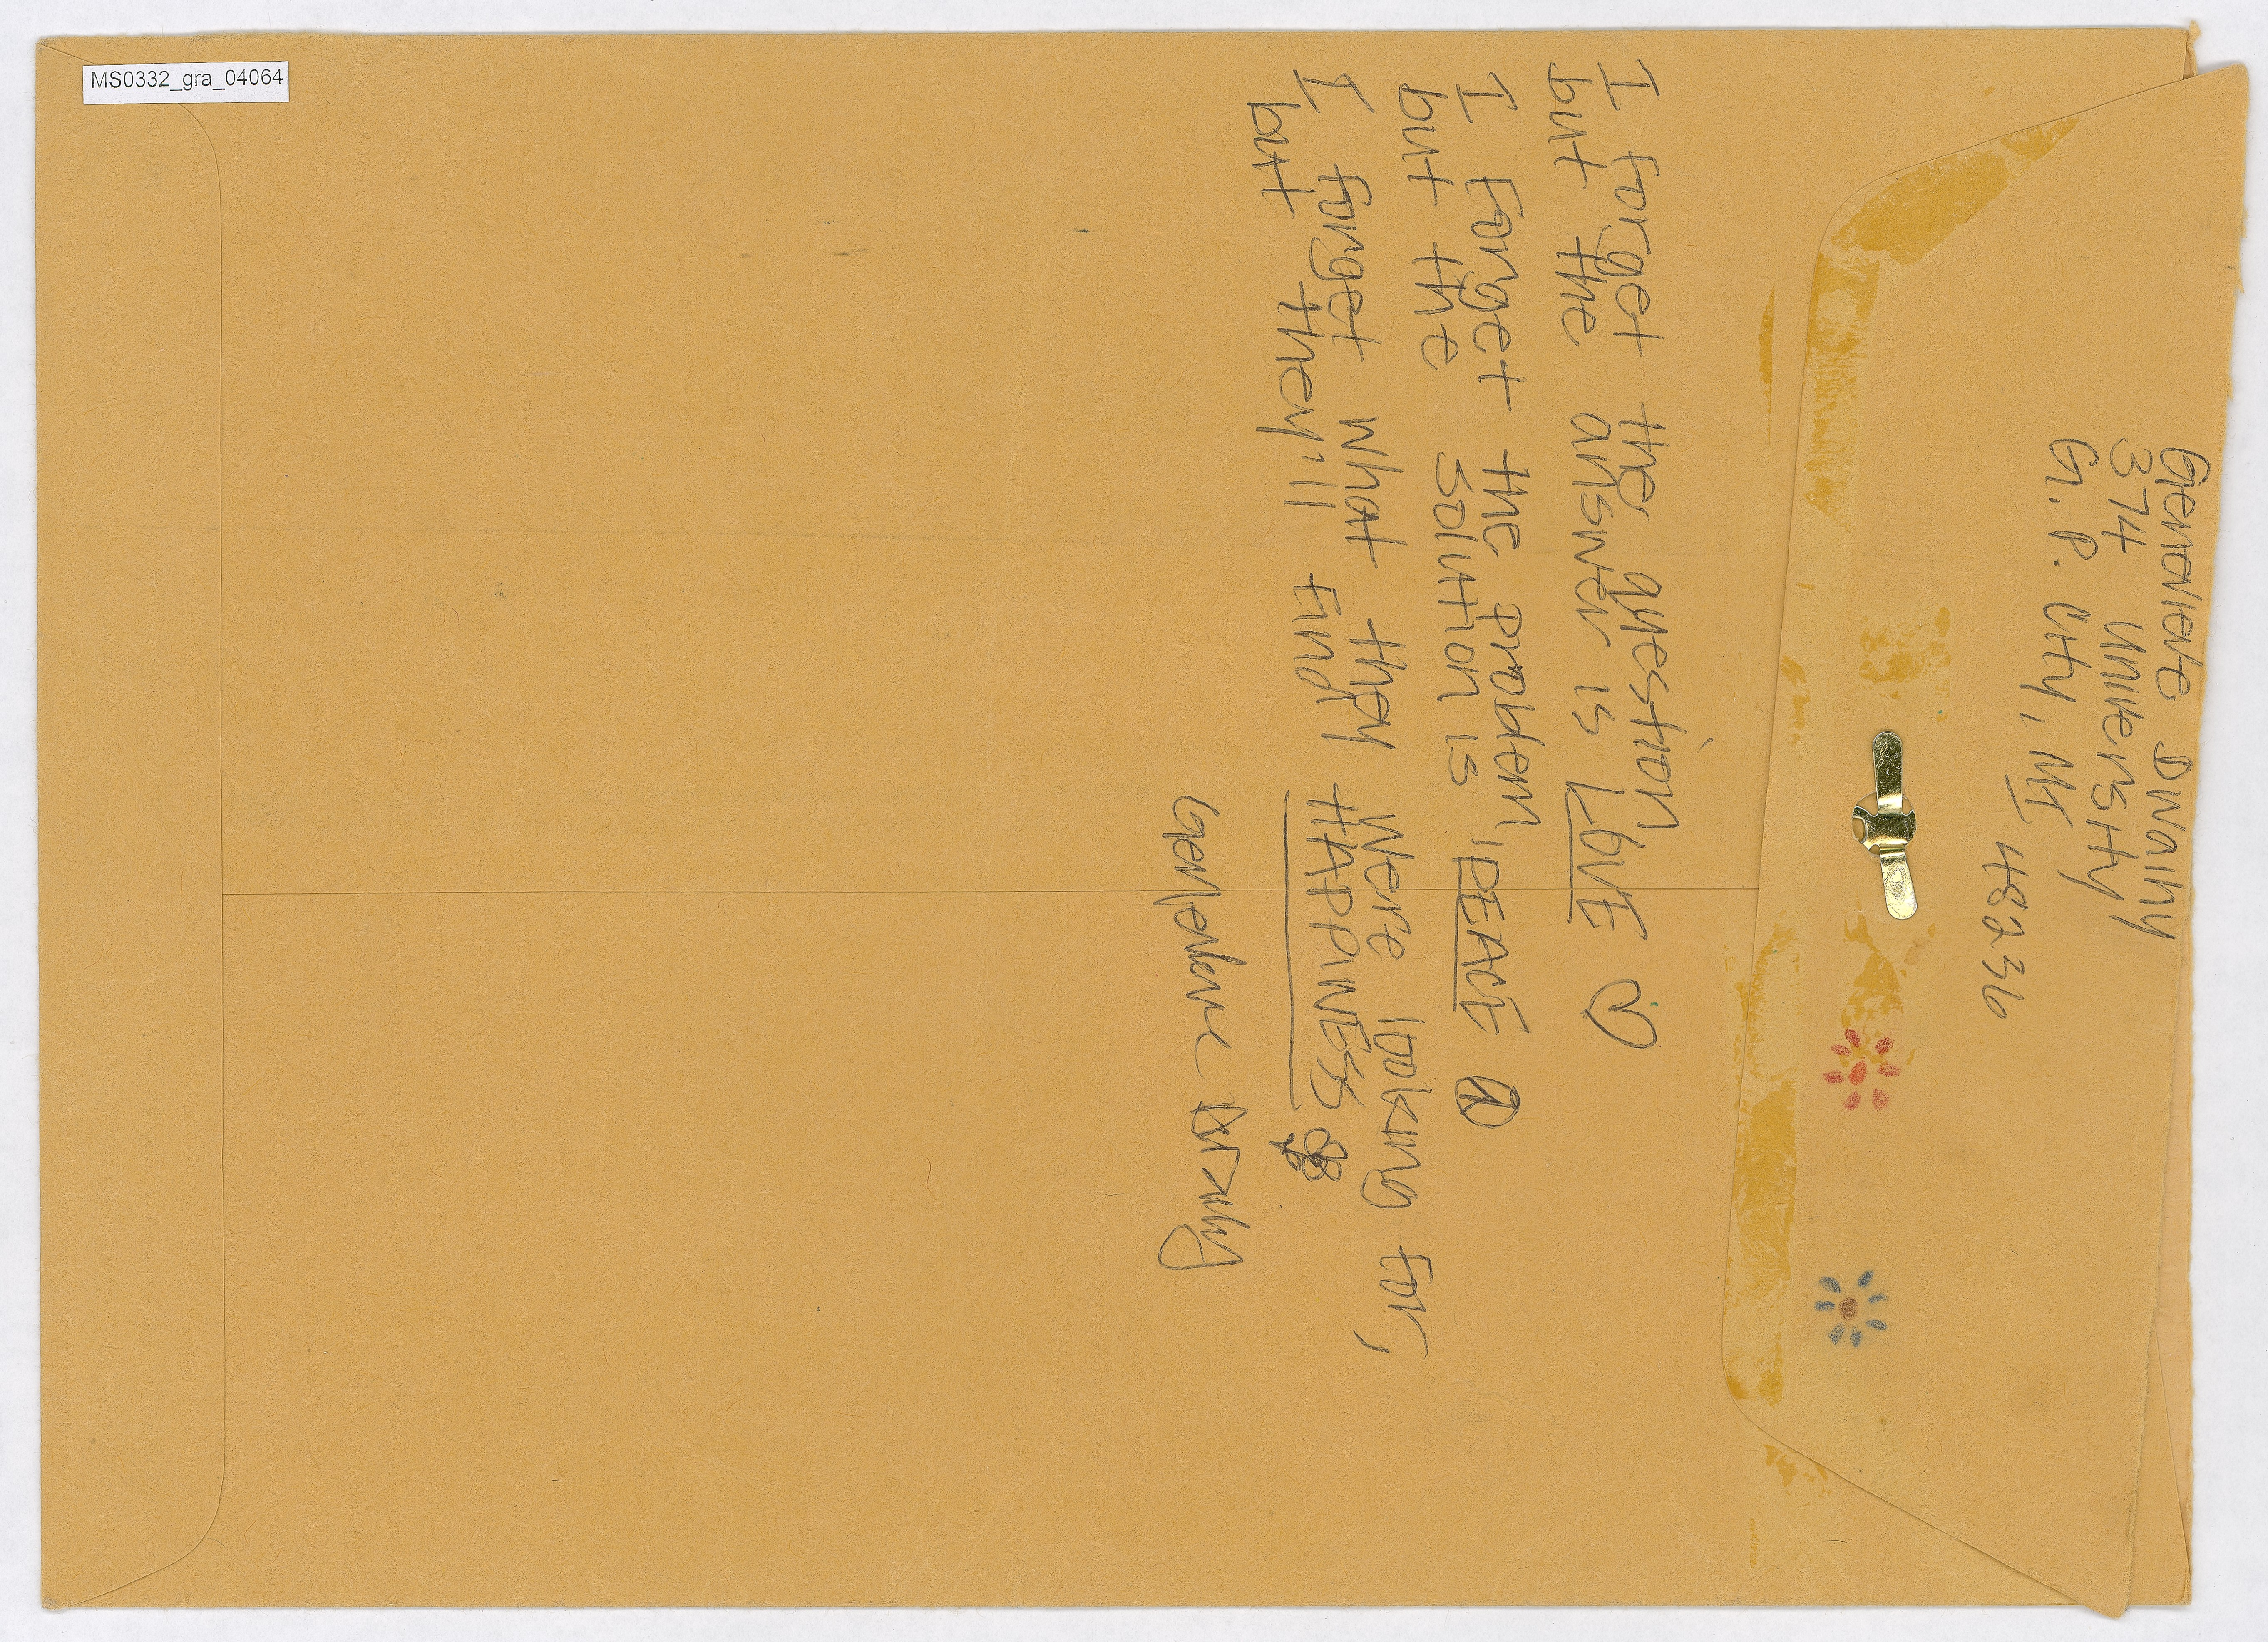 MS0332_gra_04064
Genevieve Dwaihy
374 University
G. P. City, MI
48236
I forget the question
but the answer is LOVE
I forget the problem,
but the solution is PEACE
I forget what they were looking for,
but they'll find HAPPINESS
Genevieve Dwaihy